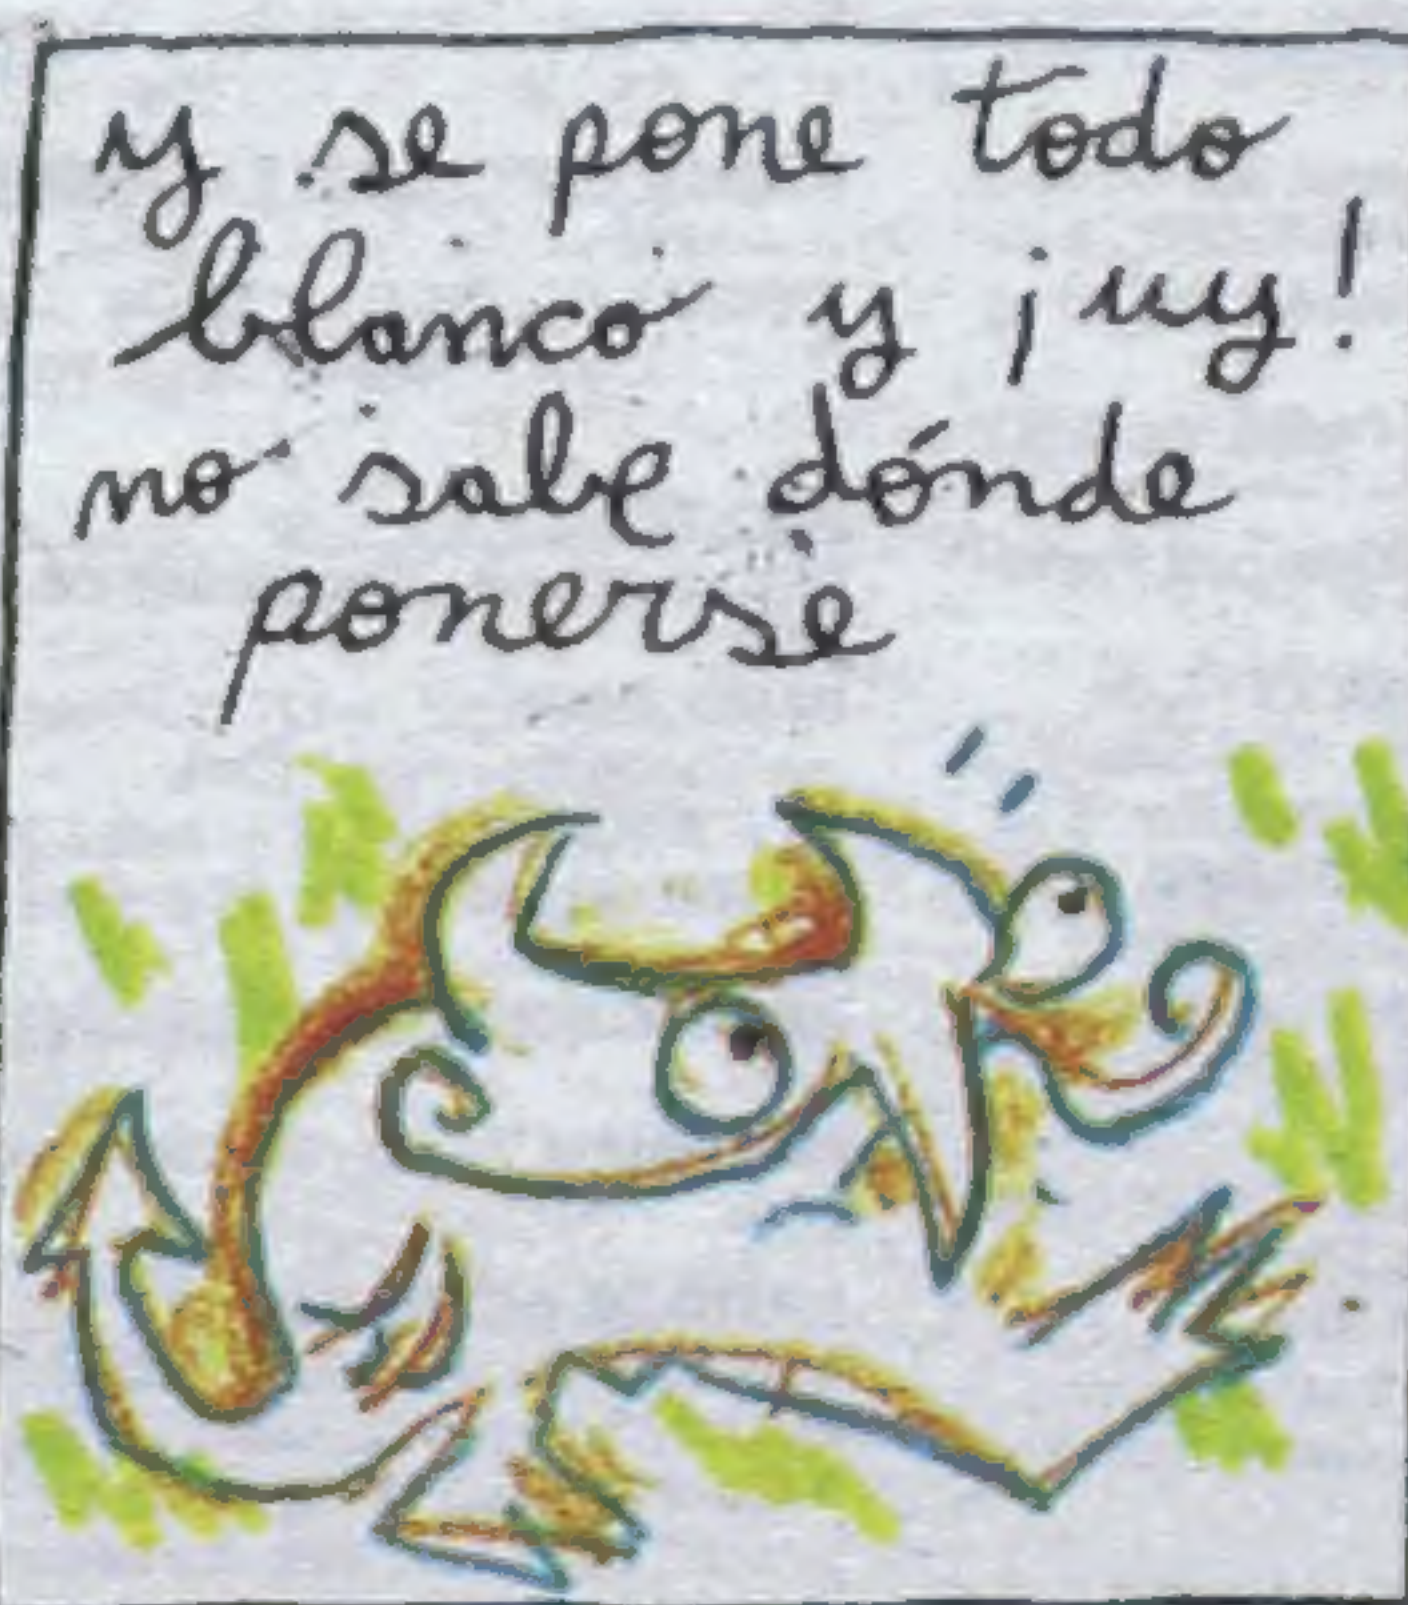 y se pone todo
blanco y ¡uy!
no sabe dónde
ponerse